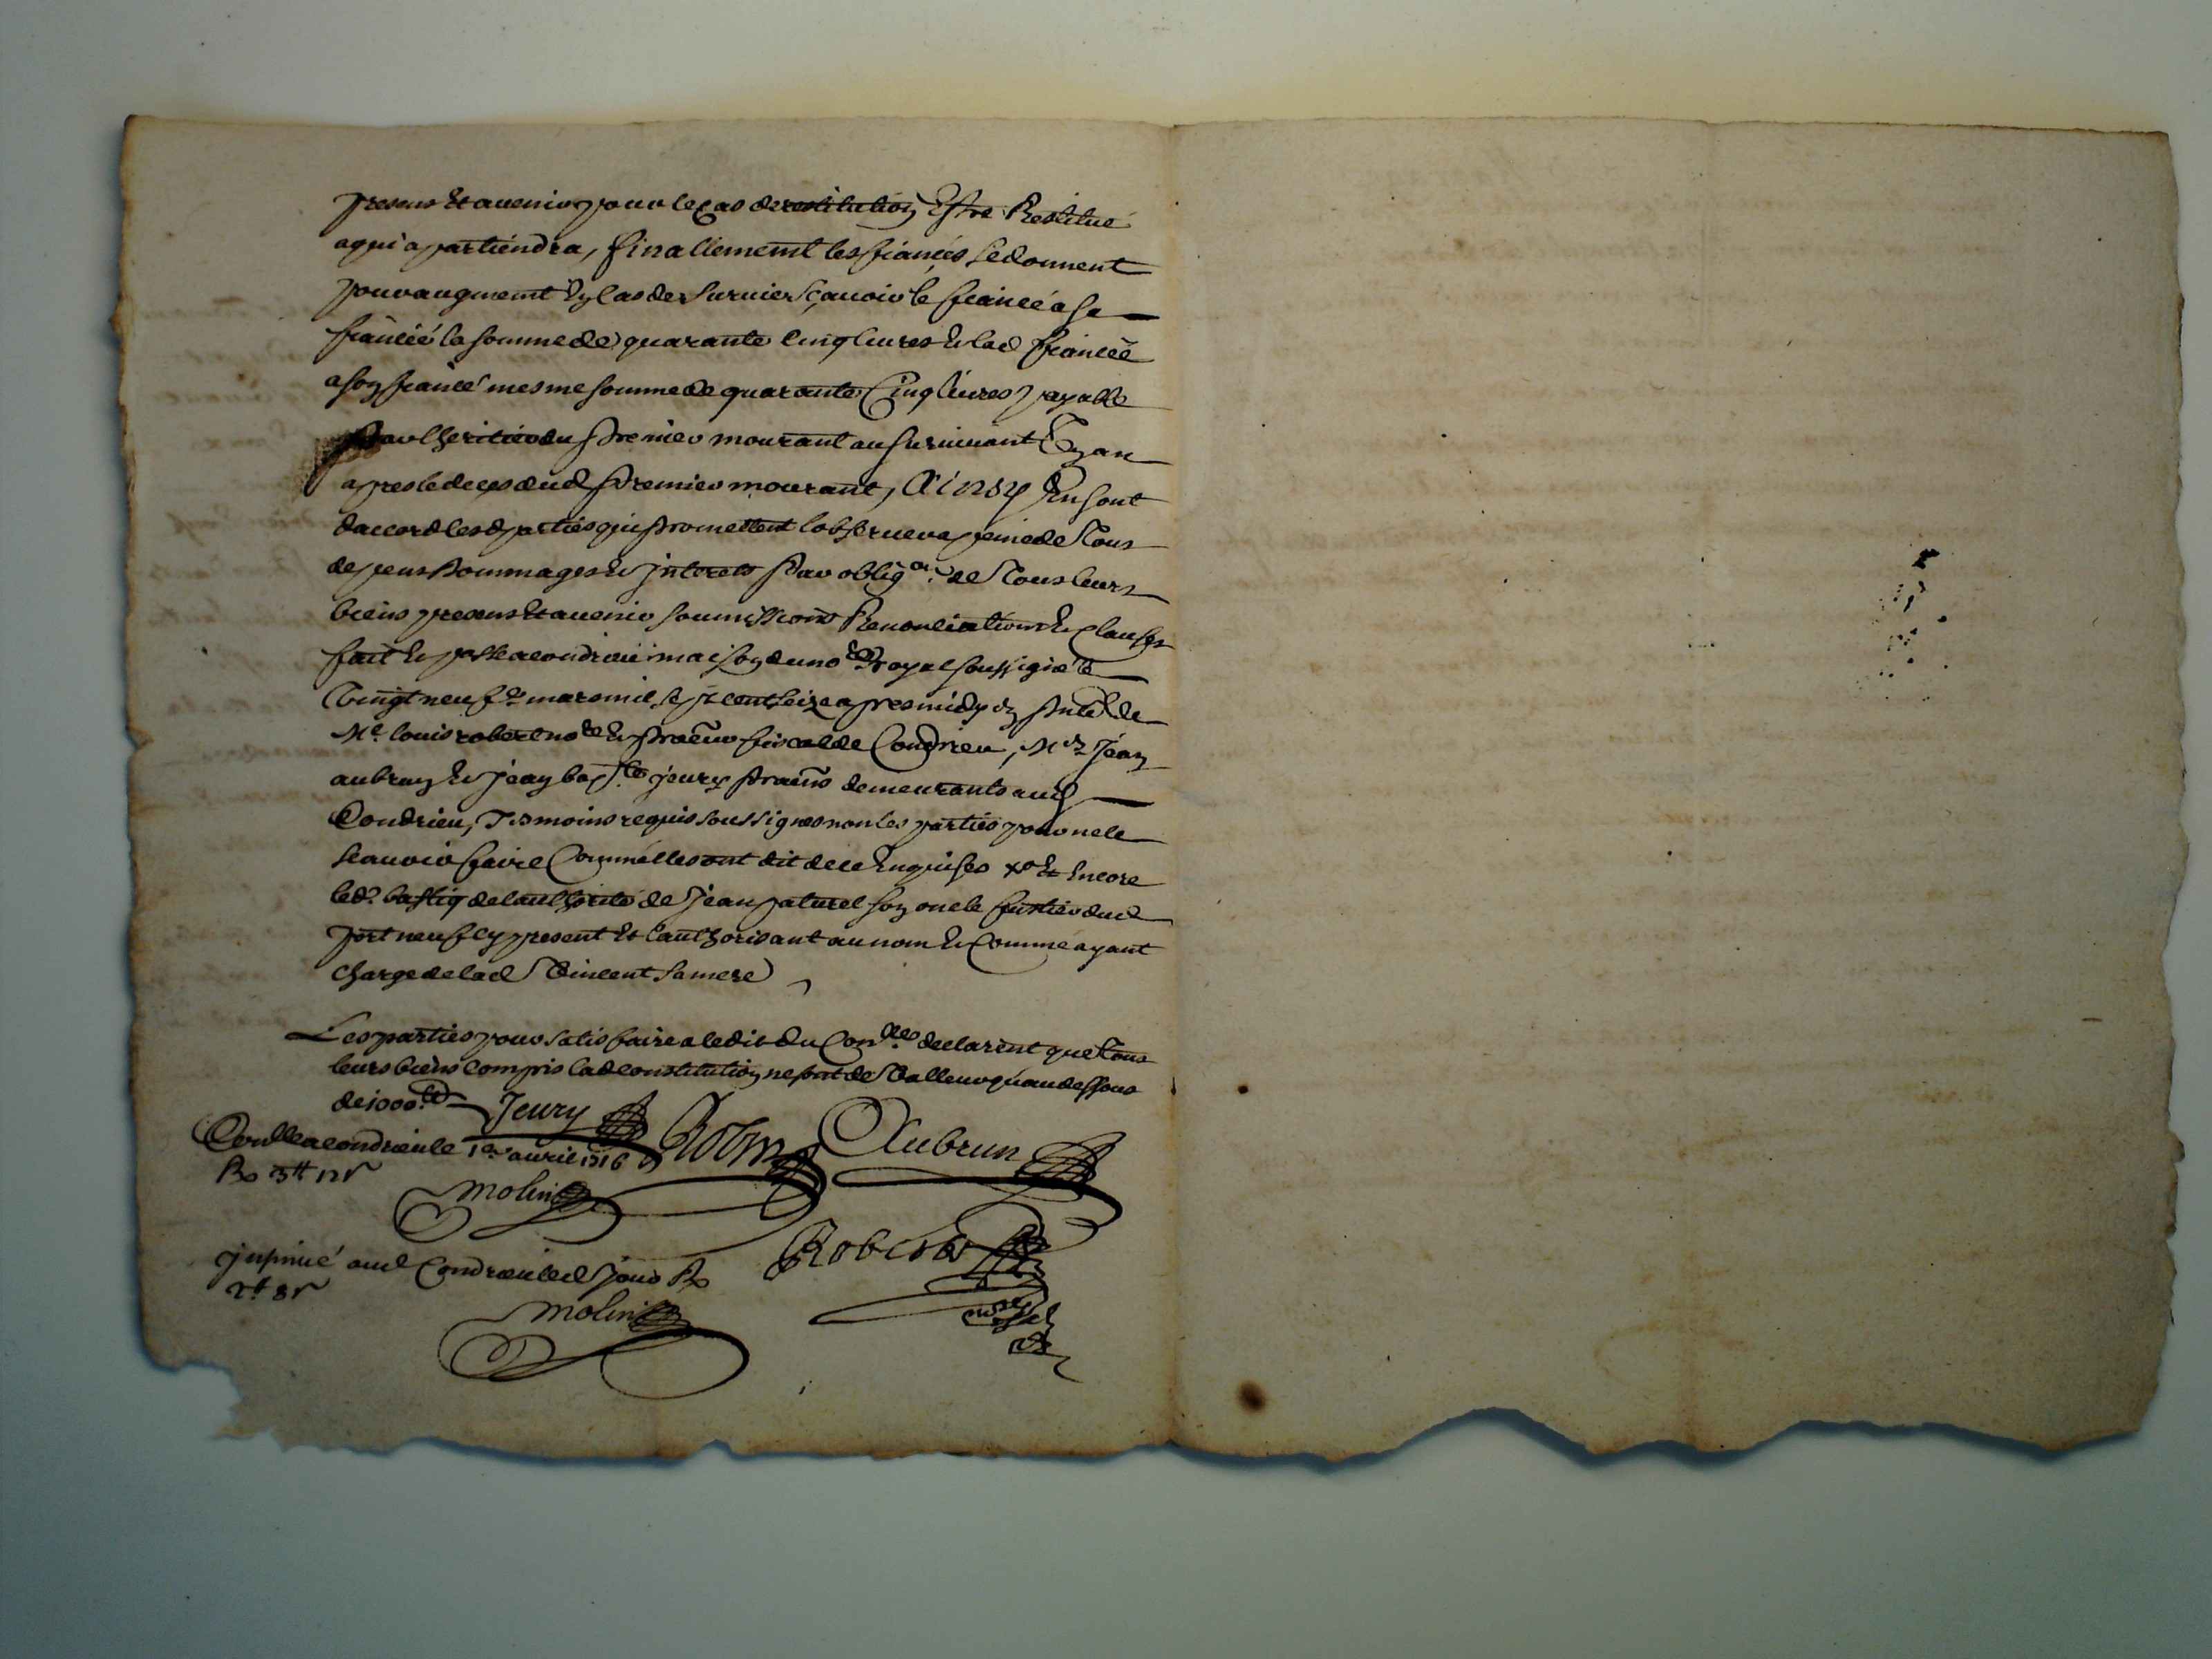 presens et avenir pour le cas de restitution Estre Restitué
a qui apartiendra, finallement les fiancés se donnent
pour augment En cas de survie sçavoir le fiancé a sa
fiancée la somme de quarante cinq livres Et lad fiancée
a son fiancé mesme somme de quarante Cinq livres payable
Par lheritier du Premier mourant au survivant Un an
apres le deces dud Premier mourant, Ainsy En sont
daccord lesd parties qui Promettent lobserver a peine de Tous
depens Dommages Et Interets Par oblig.on de Tous leurs
biens presens Et avenir soumissions Renonciations Et Clauses
fait Et passé a condrieu maison du no.re Royal soussigné le
Vingt neuf.e mars mil sept cent seize apres midy En Pnce de
Me louis robert no.re Et Procur fiscal de Condrieu, Mrs Jean
aubrun Et Jean bap.te jeury Pratiens demeurants aud
Condrieu, Tesmoins requis soussignes non les parties pour ne le
sçavoir faire Comme elles ont dit de ce Enquises Xo Et Encore
led. bastin de lauthorité de Jean paturel son oncle du d
port neuf cy present Et lauthorisant au nom Et Comme ayant
charge de lad Vincent sa mere
Les parties pour satisfaire a ledit du Con.lle declarent que Tous
leurs biens compris lad constitution ne sont de Valleur quau dessous
de 1000.lt Jeury
Conllé a condrieu le 1er avril 1716 Robin Aubrun
Ro 3tt 12s
Molin
insinué aud Condrieu led jour Ro Robert
2tt 8s
Molin